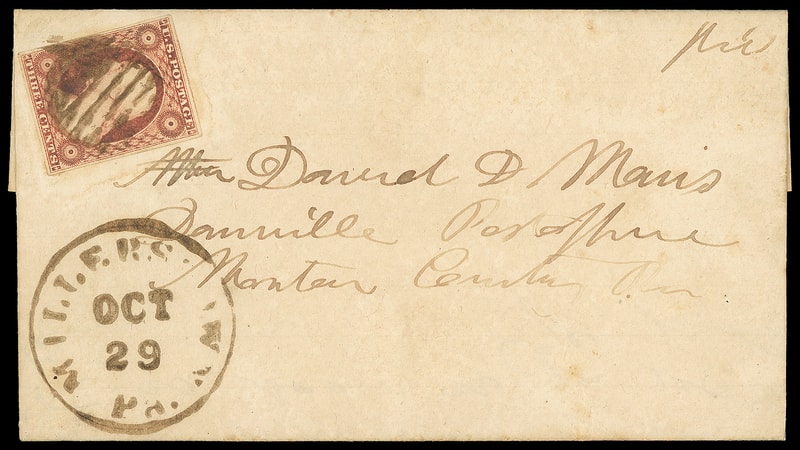 U.S. POSTAGE
THREE CENTS
David D Maus
Danville Post office
Montour County Pa
MILLERSTOWN
OCT
29
Pa.